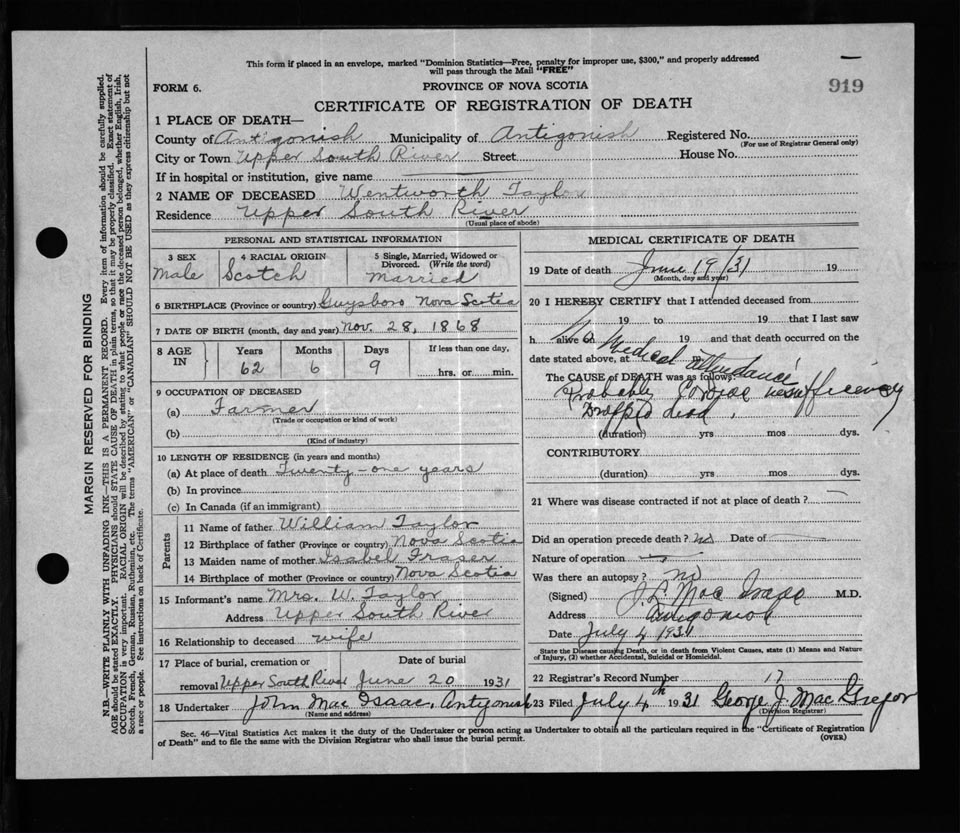 This form if placed in an envelope, marked "Dominion Statistics—Free, penalty for improper use, $300," and properly addressed
will pass through the Mail "FREE"
919
FORM 6.
PROVINCE OF NOVA SCOTIA
CERTIFICATE OF REGISTRATION OF DEATH
1 PLACE OF DEATH—
County of Antigonish Municipality of Antigonish Registered No.
(For use of Registrar General only)
City or Town Upper South River Street House No.
If in hospital or institution, give name
2 NAME OF DECEASED Wentworth Taylor
Residence Upper South River
(Usual place of abode)
PERSONAL AND STATISTICAL INFORMATION
3 SEX 4 RACIAL ORIGIN 5 Single, Married, Widowed or
Divorced. (Write the word)
Male Scotch Married
6 BIRTHPLACE (Province or country) Guysboro Nova Scotia
7 DATE OF BIRTH (month, day and year) Nov. 28, 1868
8 AGE IN Years Months Days If less than one day,
62 6 9 hrs. or min.
9 OCCUPATION OF DECEASED
(a) Farmer
(Trade or occupation or kind of work)
(b)
(Kind of industry)
10 LENGTH OF RESIDENCE (in years and months)
(a) At place of death Twenty-one years
(b) In province
(c) In Canada (if an immigrant)
Parents
11 Name of father William Taylor
12 Birthplace of father (Province or country) Nova Scotia
13 Maiden name of mother Isabel Fraser
14 Birthplace of mother (Province or country) Nova Scotia
15 Informant's name Mrs. W. Taylor
Address Upper South River
16 Relationship to deceased wife
17 Place of burial, cremation or Date of burial
removal Upper South River June 20 1931
18 Undertaker John Mac Isaac, Antigonish
(Name and address)
MEDICAL CERTIFICATE OF DEATH
19 Date of death June 19/31 19
(Month, day and year)
20 I HEREBY CERTIFY that I attended deceased from
19 to 19 that I last saw
h alive on 19 and that death occurred on the
date stated above, at
No Medical attendance
The CAUSE of DEATH was as follows:
Probably Cardiac insufficiency
Dropped dead.
(duration) yrs mos dys.
CONTRIBUTORY
(duration) yrs mos dys.
21 Where was disease contracted if not at place of death?
Did an operation precede death? no Date of
Nature of operation
Was there an autopsy? no
(Signed) Mac Isaac M.D.
Address Antigonish
Date July 4 1931
State the Disease causing Death, or in death from Violent Causes, state (1) Means and Nature
of Injury, (2) whether Accidental, Suicidal or Homicidal.
22 Registrar's Record Number 17
23 Filed July 4th 1931 George J. Mac Gregor
(Division Registrar)
Sec. 46—Vital Statistics Act makes it the duty of the Undertaker or person acting as Undertaker to obtain all the particulars required in the "Certificate of Registration
of Death" and to file the same with the Division Registrar who shall issue the burial permit.
(OVER)
MARGIN RESERVED FOR BINDING
N.B.—WRITE PLAINLY WITH UNFADING INK—THIS IS A PERMANENT RECORD. Every item of information should be carefully supplied.
AGE should be stated EXACTLY. PHYSICIANS should STATE CAUSE OF DEATH in plain terms, so that it may be properly classified. Exact statement of
OCCUPATION is very important. RACIAL ORIGIN will be described by stating to what people or race the deceased person belonged, whether English, Irish,
Scotch, French, German, Russian, Ruthenian, etc. The terms "AMERICAN" or "CANADIAN" SHOULD NOT BE USED as they express citizenship but not
a race or people. See instructions on back of Certificate.